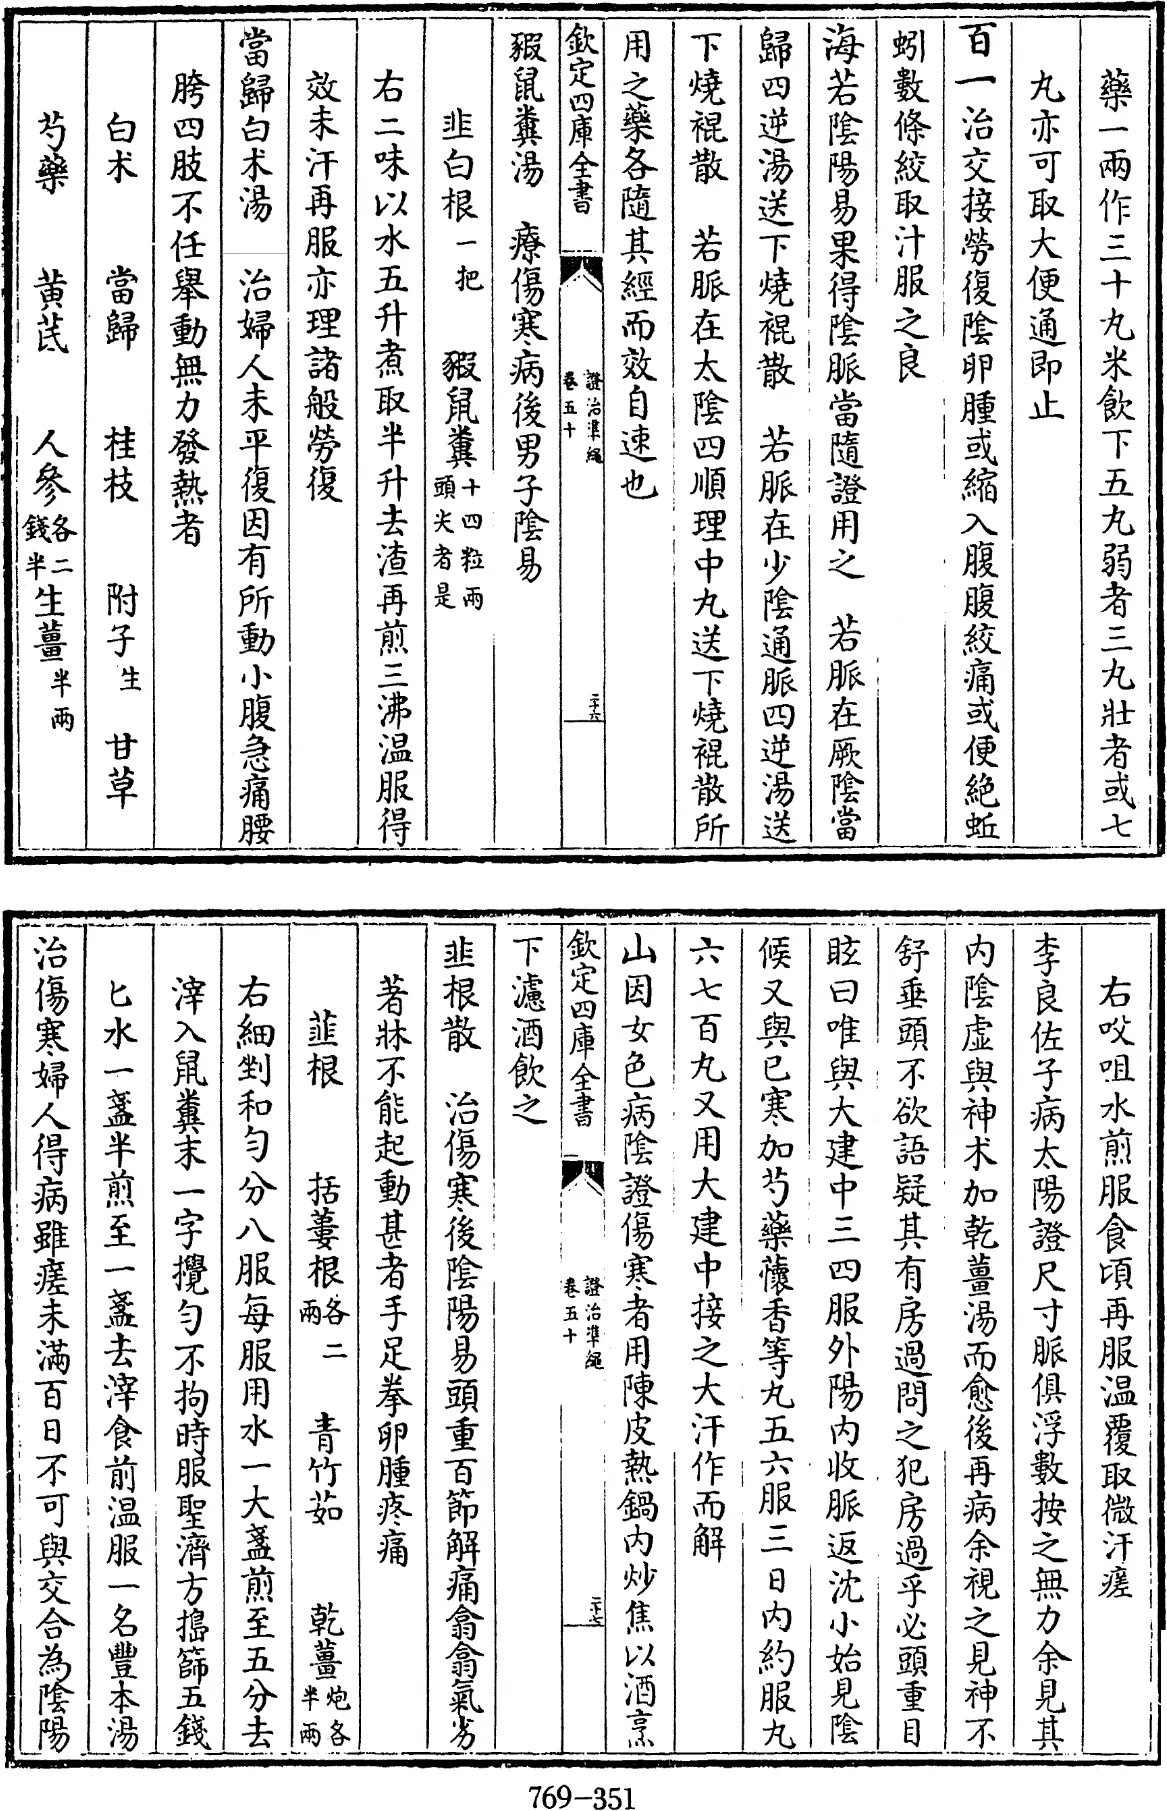 藥一兩作三十九米飲下五丸弱者三丸壯者或七
丸亦可取大便通即止
百一治交接勞復陰卵腫或縮入腹腹絞痛或便絶蚯
蚓數條絞取汁服之良
海若陰陽易果得陰脈當隨證用之　若脈在厥陰當
歸四逆湯送下燒裩散　若脈在少陰通脈四逆湯送
下燒裩散　若脈在太陰四順理中丸送下燒裩散所
用之藥各隨其經而效自速也
欽定四庫全書
證治準繩
卷五十
二十六
豭鼠糞湯　療傷寒病後男子陰易
韭白根一把　豭鼠糞十四粒兩頭尖者是
右二味以水五升煮取半升去渣再煎三沸溫服得
效未汗再服亦理諸般勞復
當歸白朮湯　治婦人未平復因有所動小腹急痛腰
胯四肢不任舉動無力發熱者
白朮　當歸　桂枝　附子生　甘草
芍藥　黃芪　人參各二錢半　生薑半兩
右㕮咀水煎服食頃再服溫覆取微汗瘥
李良佐子病太陽證尺寸脈俱浮數按之無力余見其
内陰虛與神朮加乾薑湯而愈後再病余視之見神不
舒垂頭不欲語疑其有房過問之犯房過乎必頭重目
眩曰唯與大建中三四服外陽内收脈返沈小始見陰
候又與已寒加芍藥蘹香等丸五六服三日内約服丸
六七百丸又用大建中接之大汗作而解
山因女色病陰證傷寒者用陳皮熱鍋内炒焦以酒烹
下濾酒飲之
欽定四庫全書
證治準繩
卷五十
二十七
韭根散　治傷寒後陰陽易頭重百節解痛翕翕氣劣
著牀不能起動甚者手足拳卵腫疼痛
韮根　括蔞根各二兩　青竹茹　乾薑炮各半兩
右細剉和勻分八服每服用水一大盞煎至五分去
滓入鼠糞末一字攪勻不拘時服聖濟方搗篩五錢
匕水一盞半煎至一盞去滓食前溫服一名豐本湯
治傷寒婦人得病雖瘥未滿百日不可與交合為陰陽
769-351